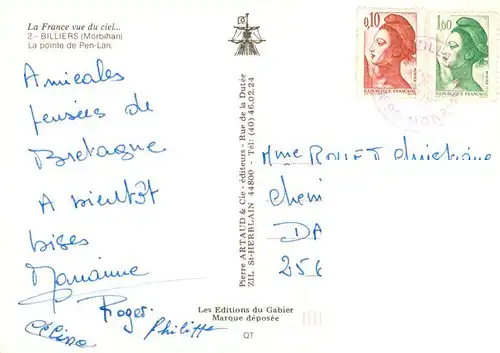 La France vue du ciel...
2 - BILLIERS (Morbihan)
La pointe de Pen-Lan.
Amicales
pensées de
Bretagne
A bientôt
bises
Marianne
Roger
Philippe
Pierre ARTAUD & Cie - éditeurs - Rue de la Dutée
ZIL St-HERBLAIN 44800 - Tél: (40) 46.02.24
Les Editions du Gabier
Marque déposée
QT
0,10
REPUBLIQUE FRANÇAISE
1,60
REPUBLIQUE FRANÇAISE
Mme
Chem
DA
256